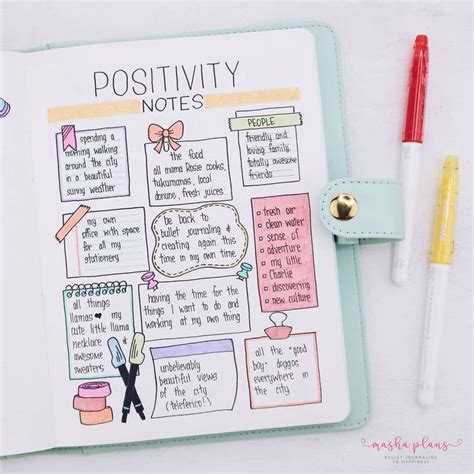 POSITIVITY
NOTES
spending a
morning walking
around the city
in a beautiful
sunny weather
the food
all mama Rosie cooks,
tukumanas, local
donuts, fresh juices
PEOPLE
friendly and
loving family,
totally awesome
friends
my own
office with space
for all my
stationery
be back to
bullet journaling &
creating again this
time in my own time.
fresh air
clean water
sense of
adventure
my little
Charlie
discovering
new culture
all things
llamas ♥ my
cute little llama
necklace
awesome
sweaters
having the time for
things I want to do and
working at my own thing
unbelievably
beautiful views
of the city
(teleferico!)
all the "good
boy" doggos
everywhere in
the city
masha plans
BULLET JOURNALING
TO HAPPINESS